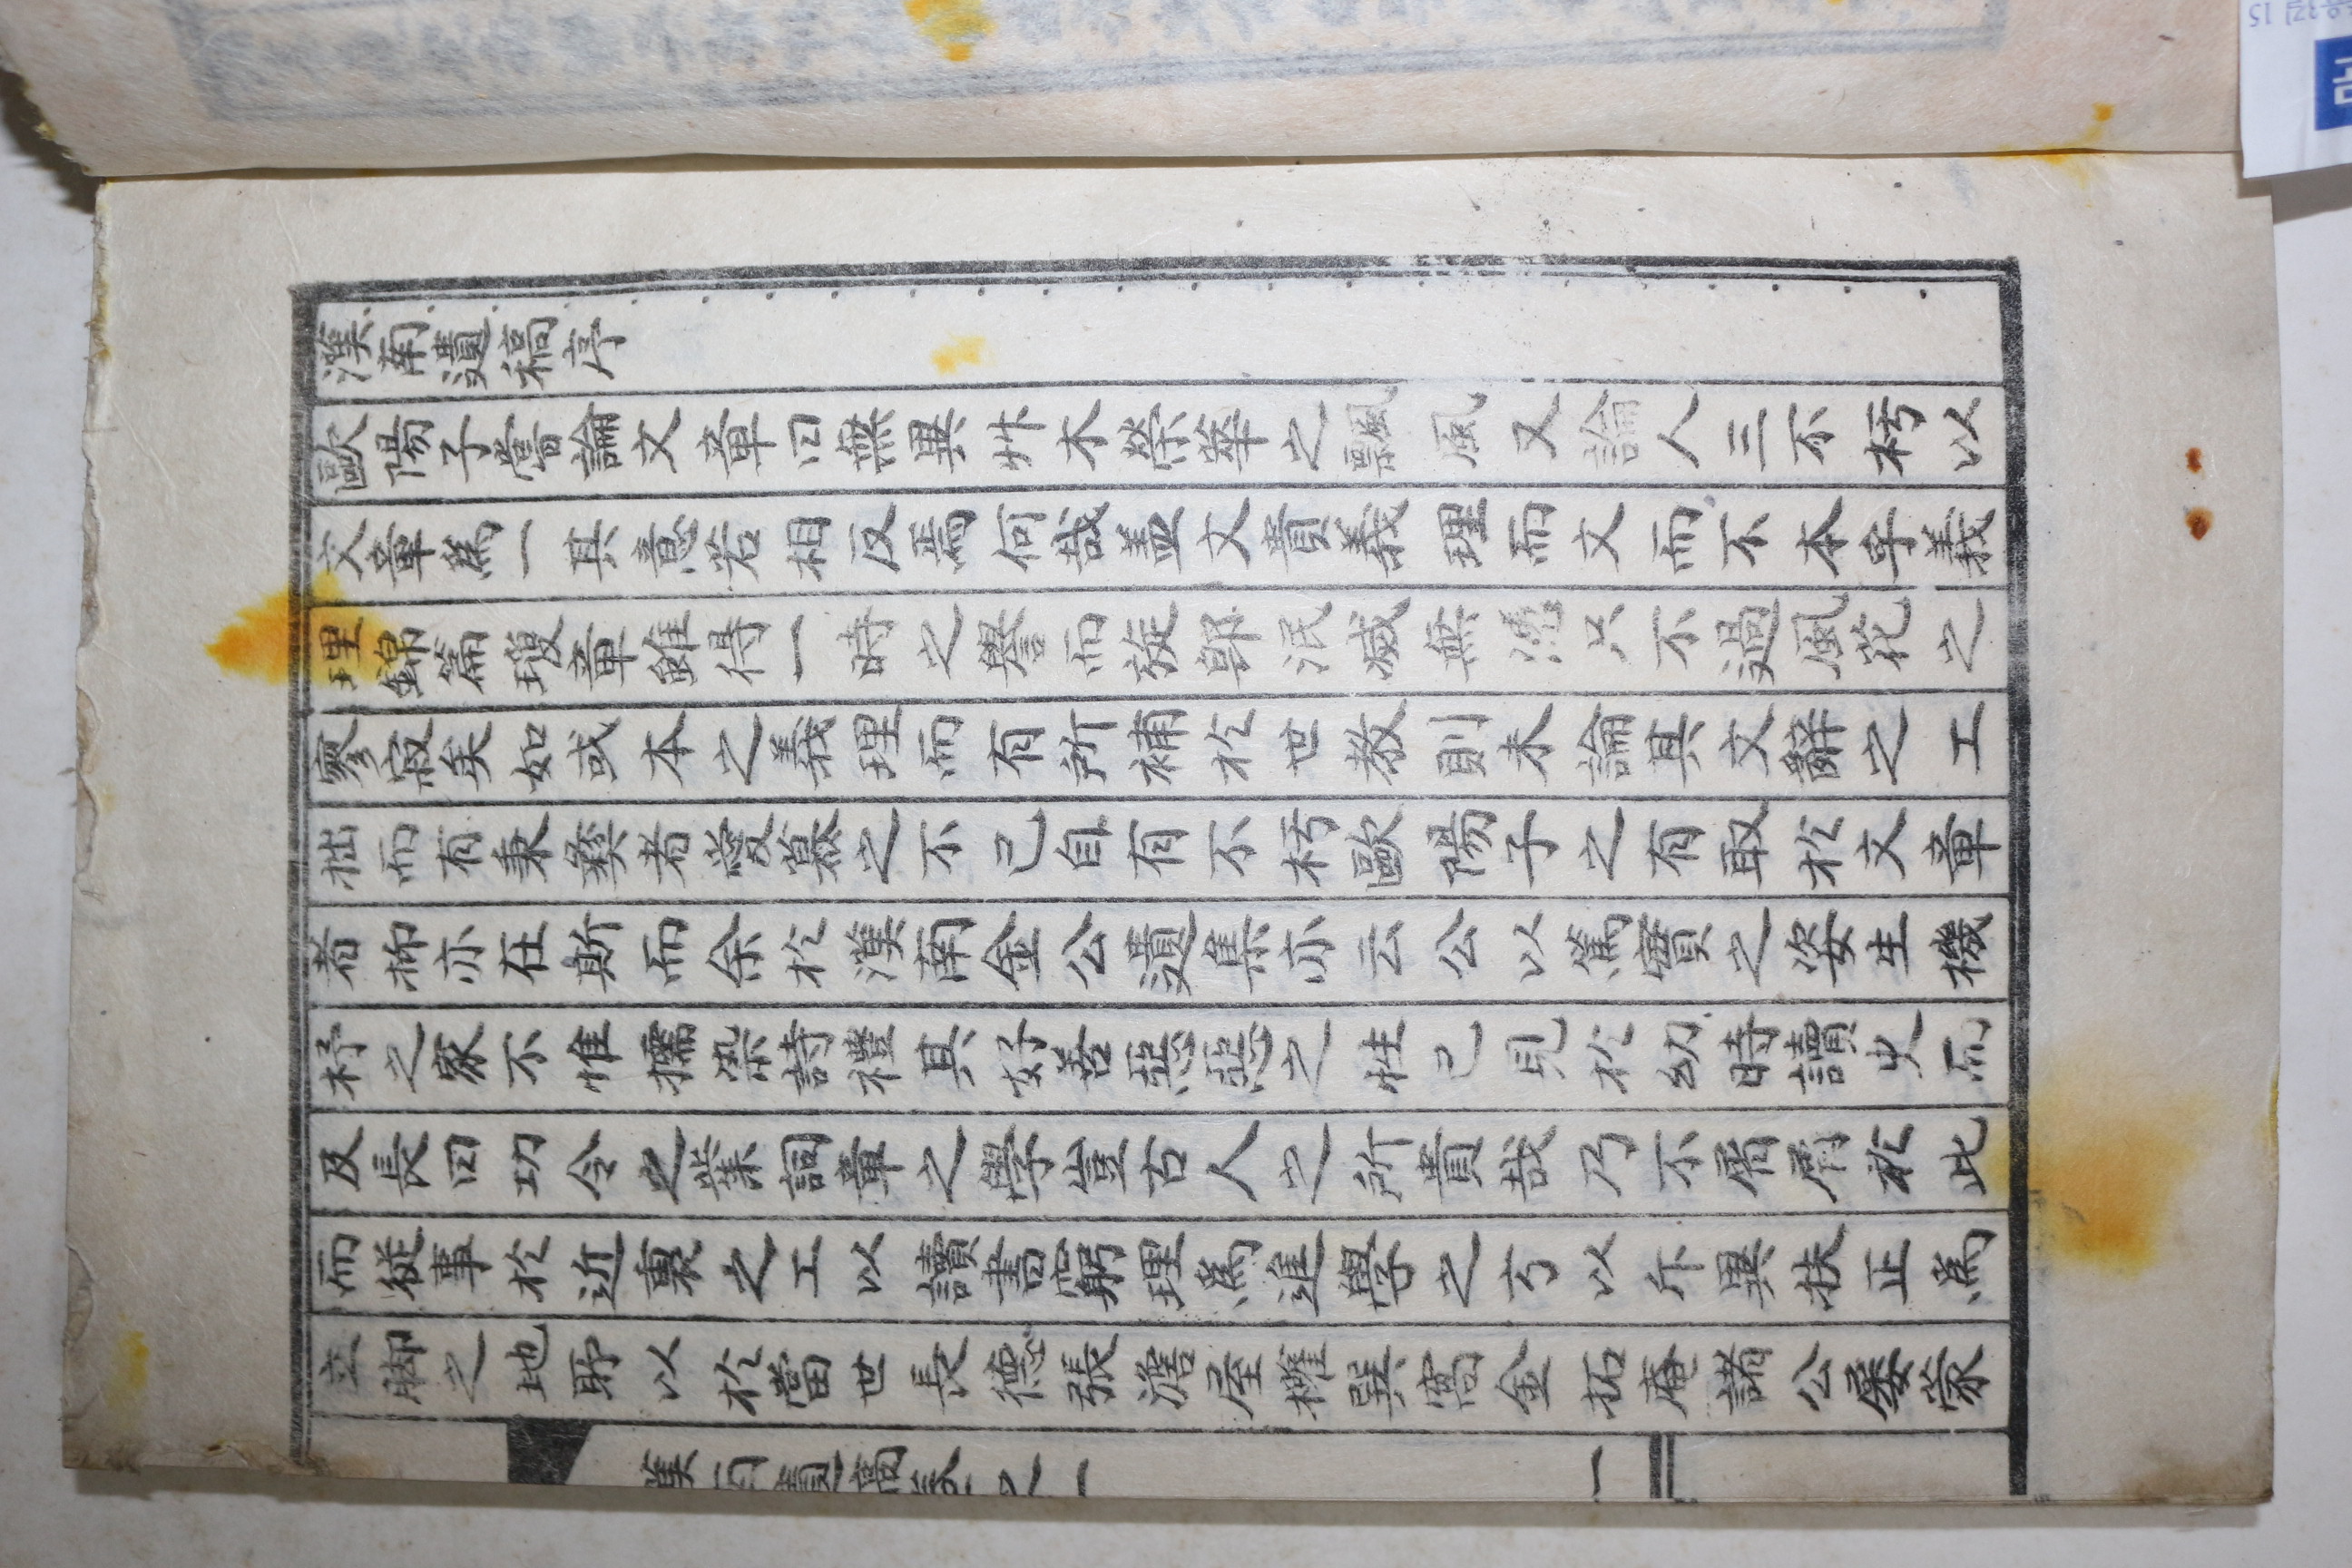 漢南遺稿序
歐陽子嘗論文章曰無異艸木榮華之飄風又論人三不朽以
文章爲一其意若相反焉何哉盖文貴義理而文而不本乎義
理錦篇瓊章雖得一時之譽而旋卽泯滅無憑只不過風花之
寥寂矣如或本之義理而有所補於世教則未論其文辭之工
拙而有秉彜者愛慕之不已自有不朽歐陽子之有取於文章
者抑亦在斯而余於漢南金公遺集亦云公以篤實之姿生機
杼之家不惟擩染詩禮其好善惡惡之性已見於幼時讀史而
及長曰功令之業詞章之學豈古人之所貴哉乃不屑屑於此
而從事於近裏之工以讀書窮理爲進學之方以斥異扶正爲
立脚之地所以於當世長德張澹屋權巽窩金拓庵諸公屢蒙
漢南遺稿卷之一
一